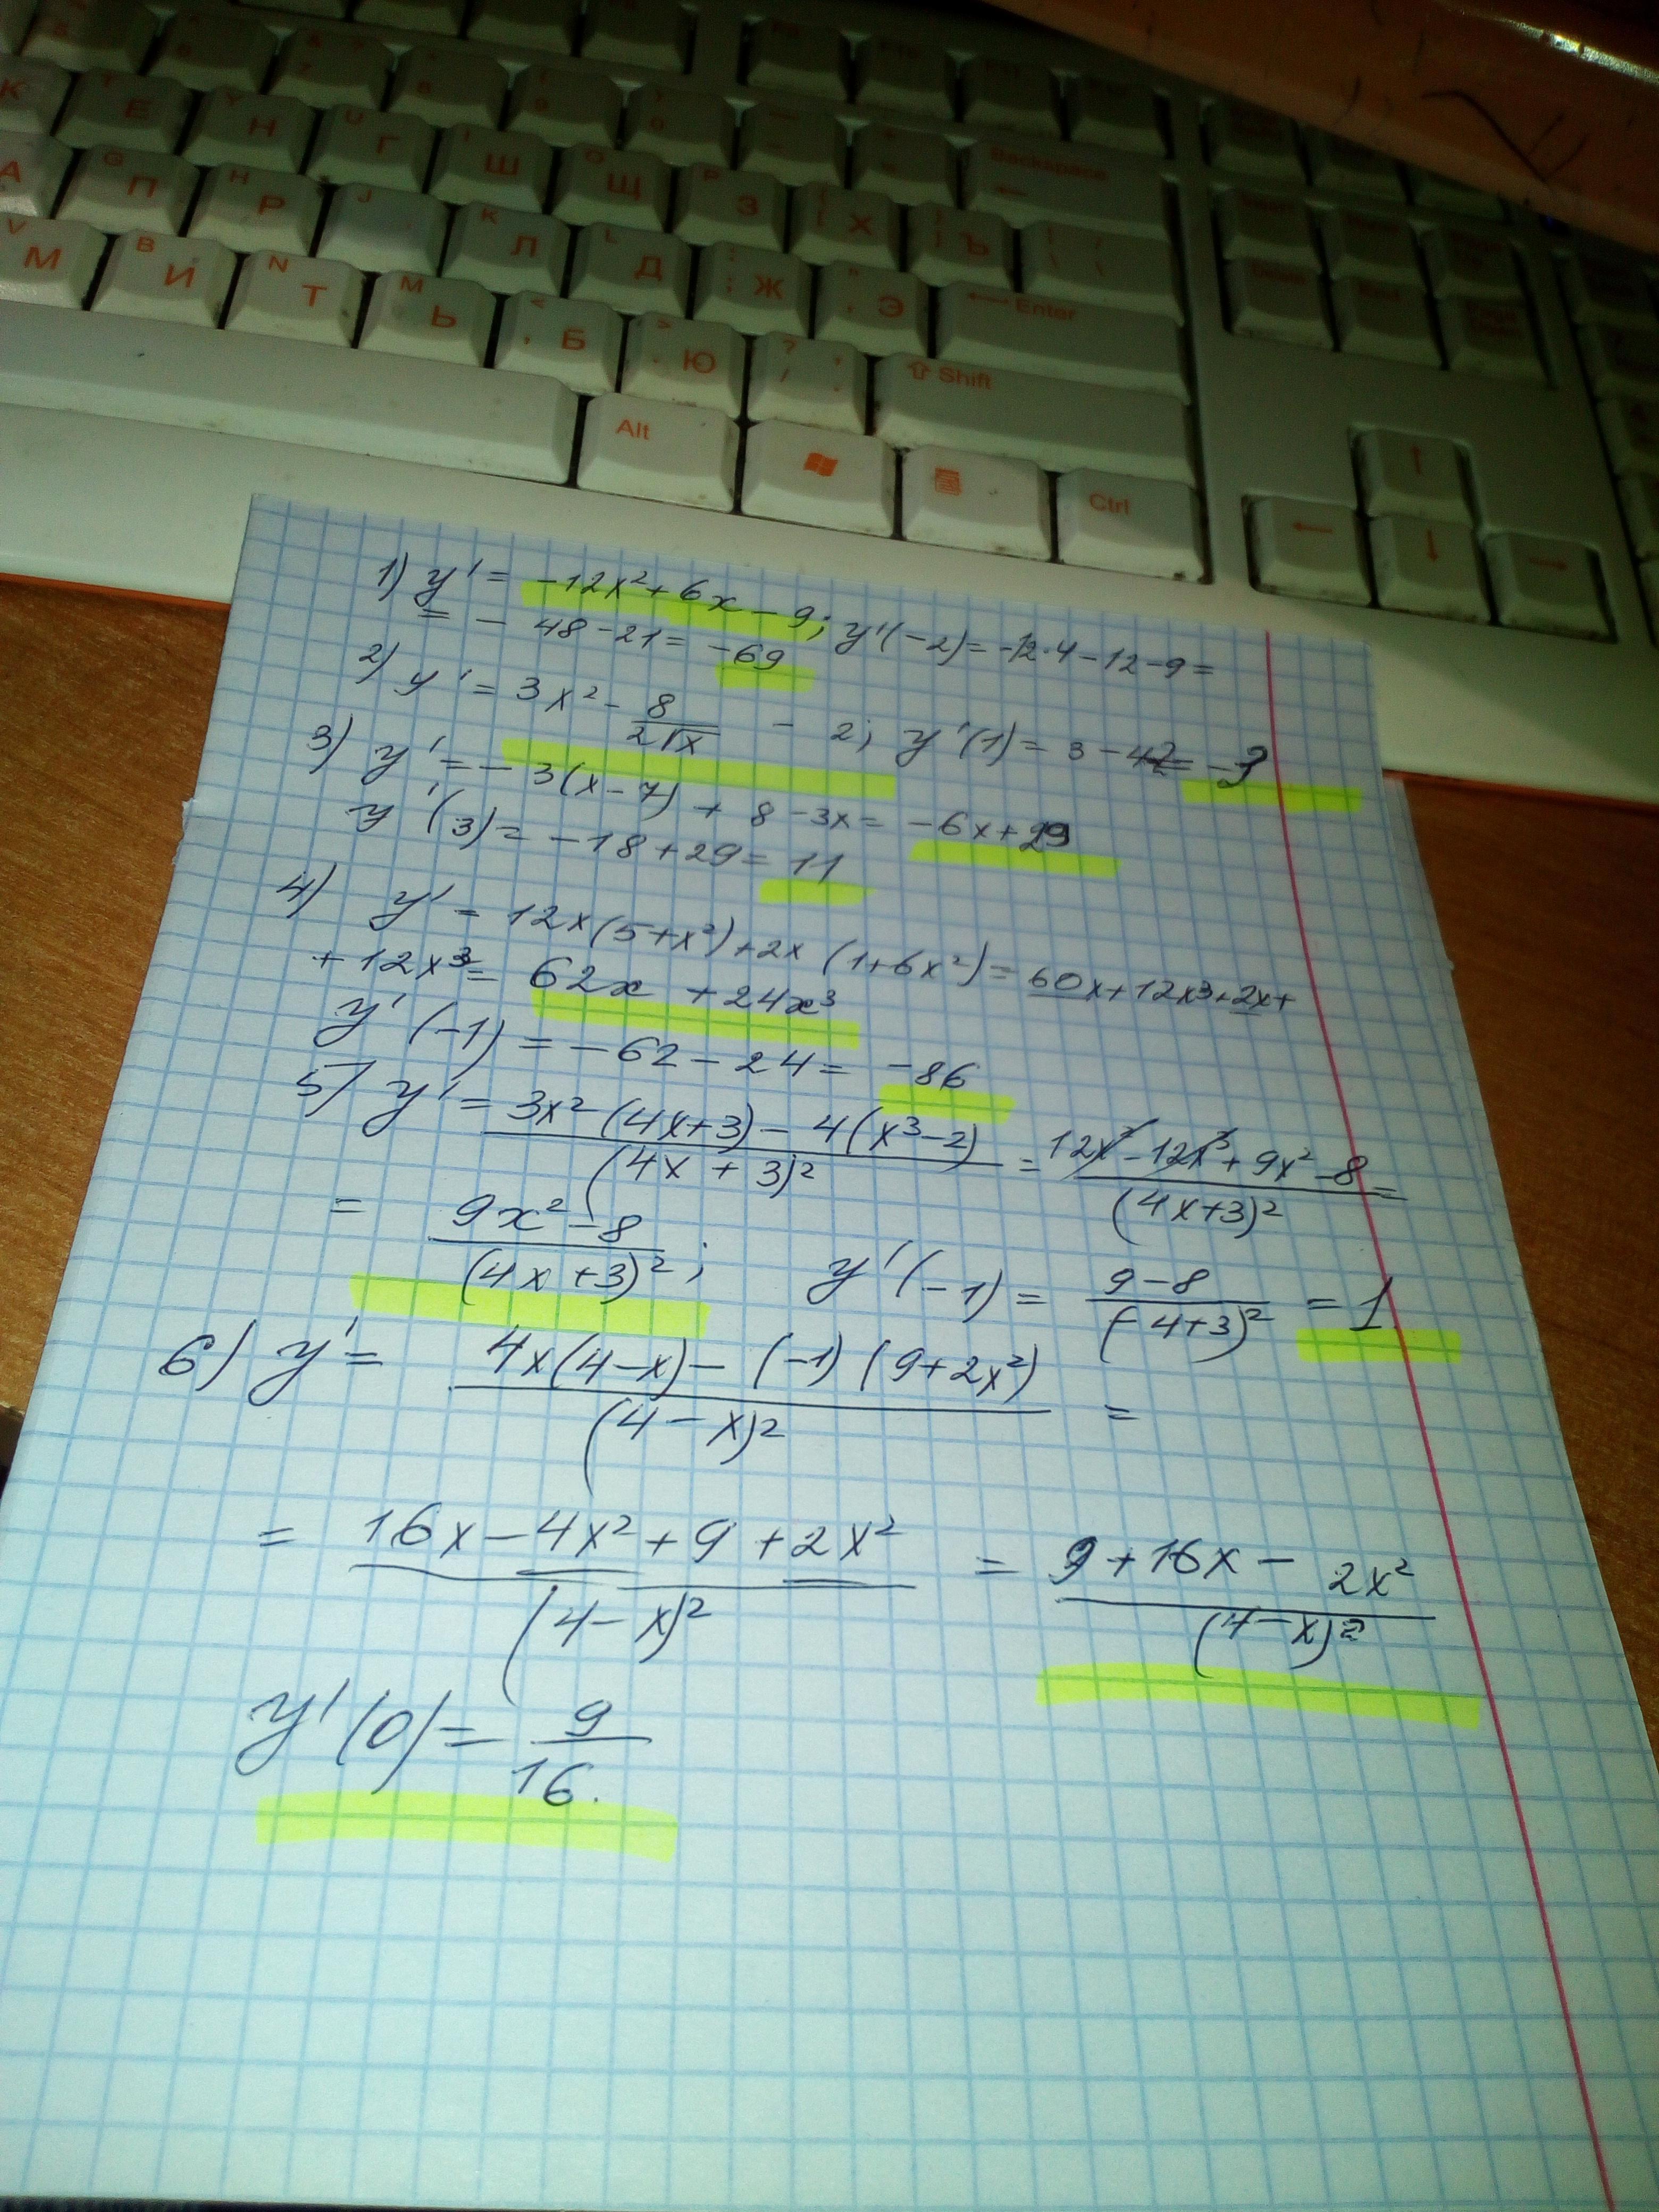 К Е Н Г Ш Щ З Х Ъ Backspace
А П Р Л Д Ж Э Enter
М И Т Ь Б Ю Shift
Alt Ctrl
1) y' = -12x² + 6x - 9; y'(-2) = -12·4 - 12 - 9 =
= - 48 - 21 = -69
2) y' = 3x² - 8/(2√x) - 2; y'(1) = 3 - 4 - 2 = -3
3) y' = -3(x-7) + 8 - 3x = -6x + 29
y'(3) = -18 + 29 = 11
4) y' = 12x(5+x²) + 2x(1+6x²) = 60x + 12x³ + 2x +
+ 12x³ = 62x + 24x³
y'(-1) = -62 - 24 = -86
5) y' = (3x²(4x+3) - 4(x³-2))/(4x+3)² = (12x³ - 12x³ + 9x² - 8)/(4x+3)² =
= (9x² - 8)/(4x+3)²; y'(-1) = (9-8)/(-4+3)² = 1.
6) y' = (4x(4-x) - (-1)(9+2x²))/(4-x)² =
= (16x - 4x² + 9 + 2x²)/(4-x)² = (9 + 16x - 2x²)/(4-x)²
y'(0) = 9/16.